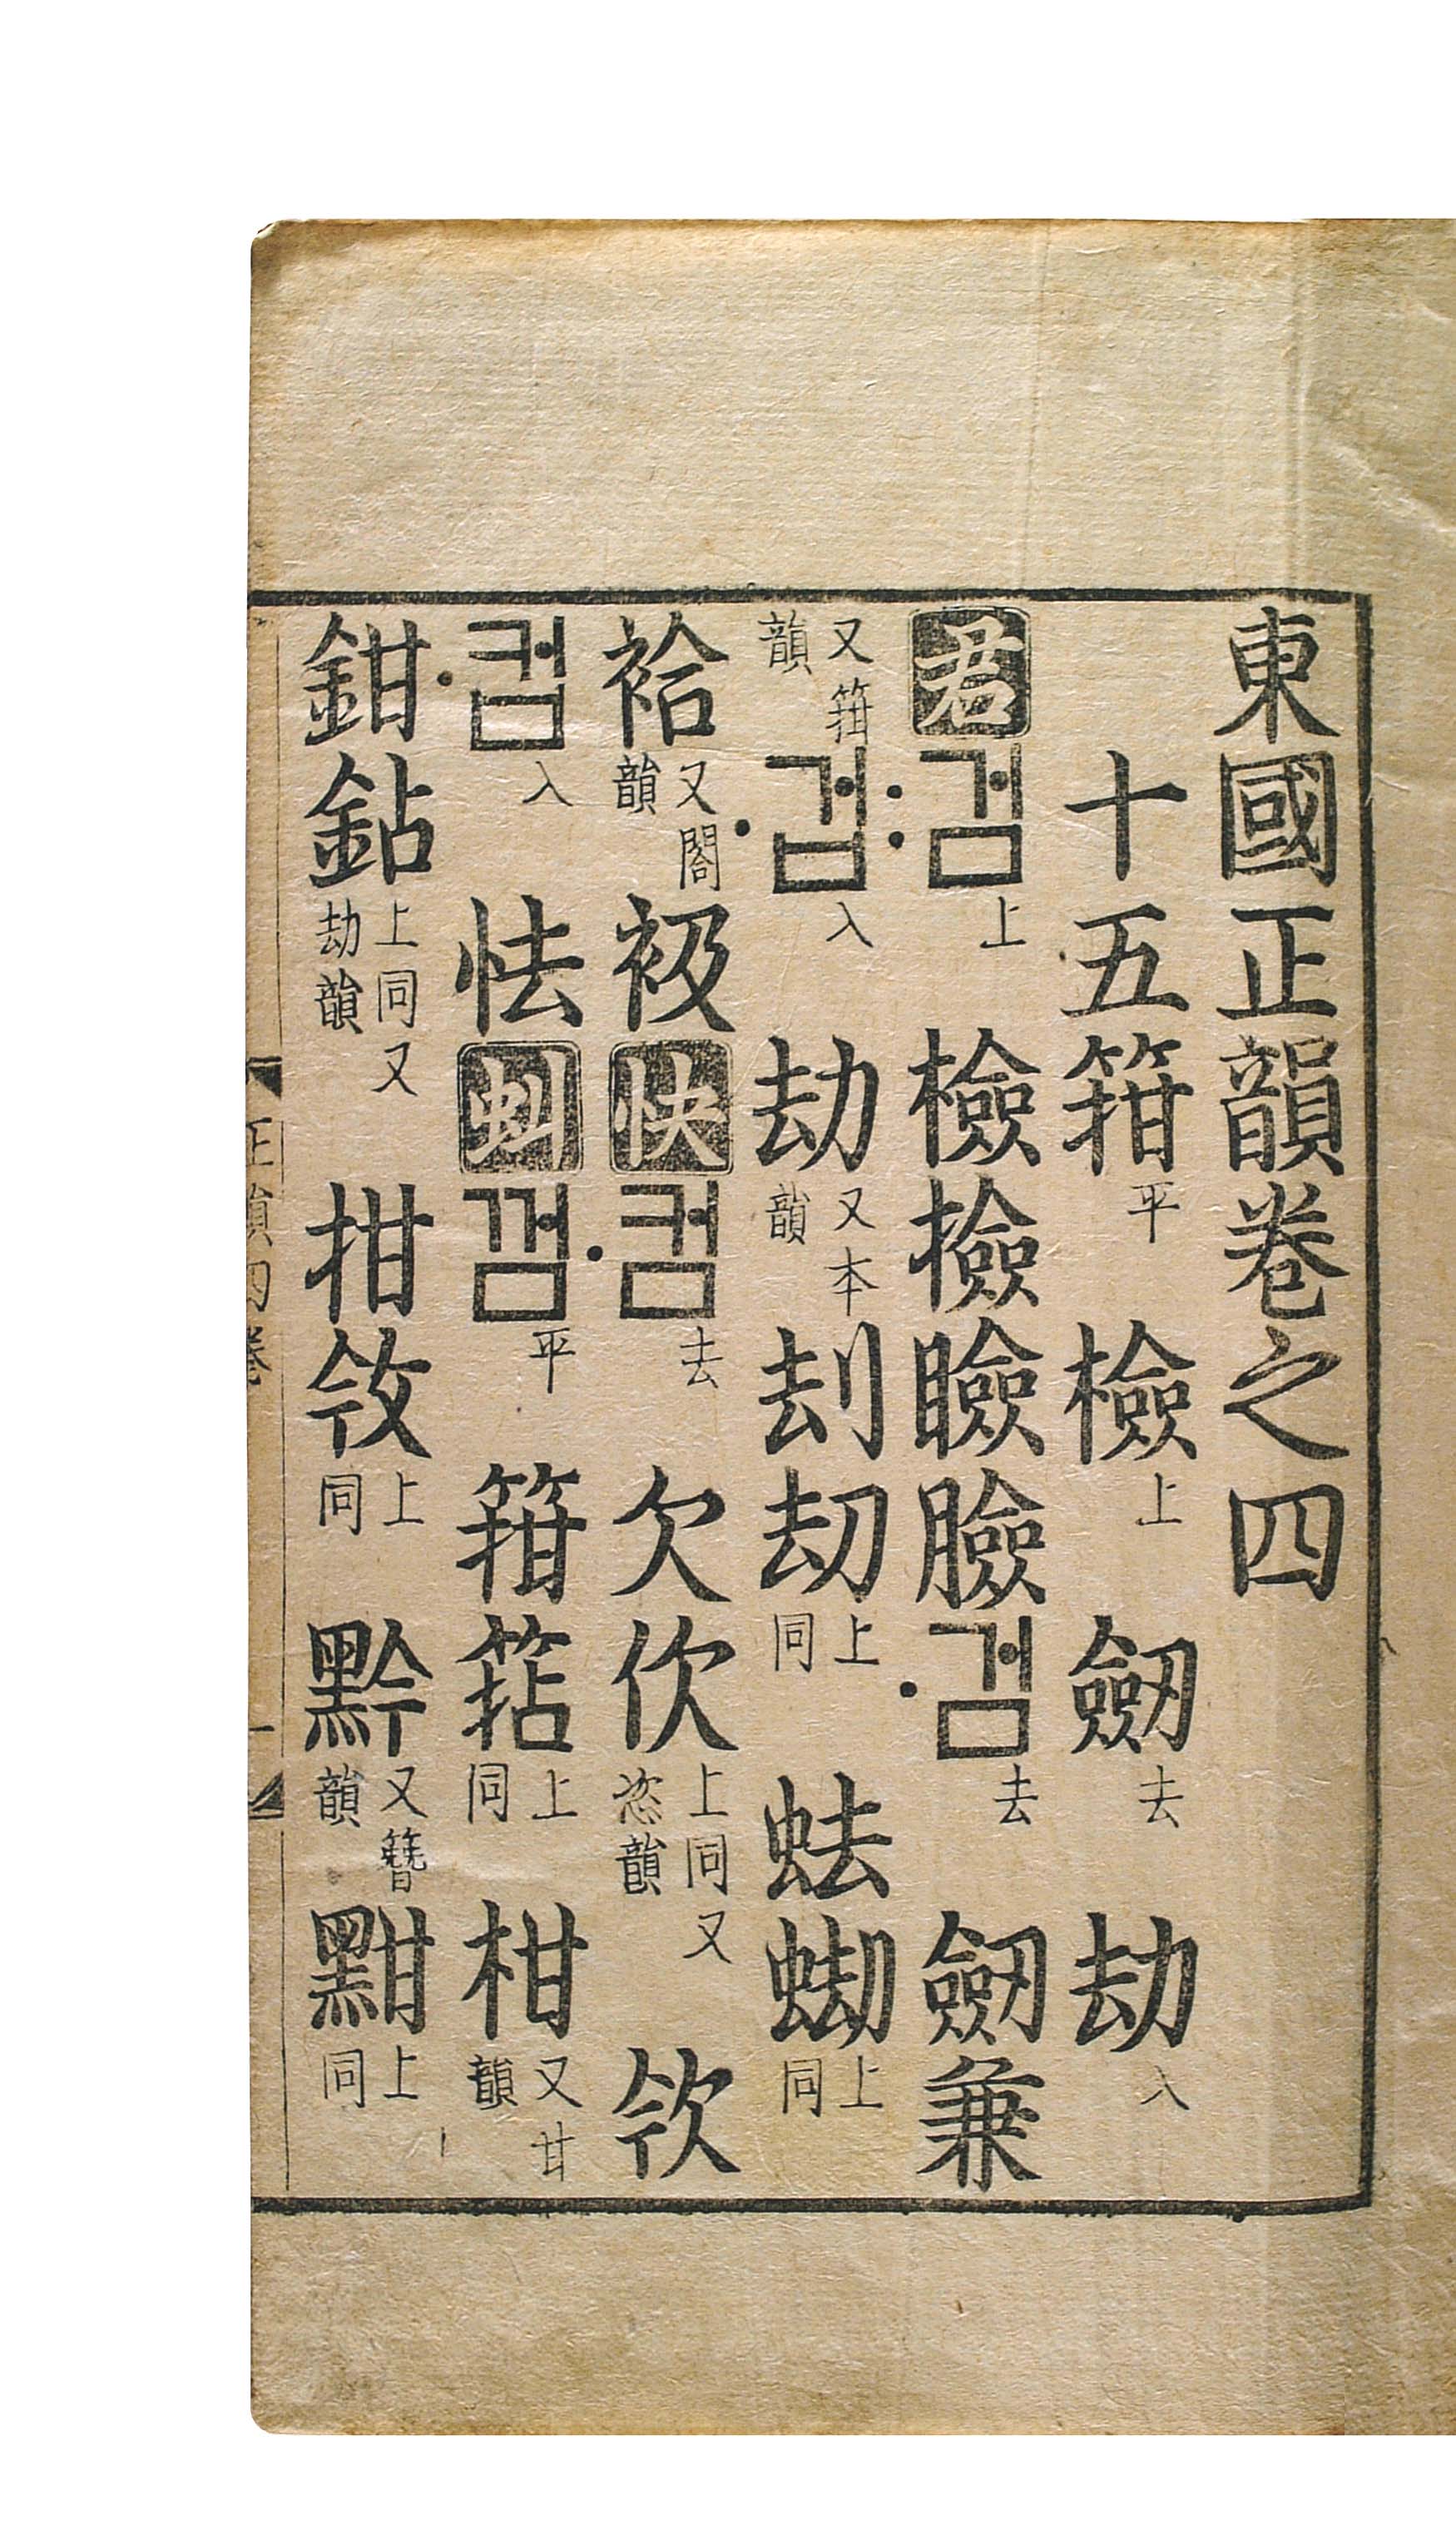 東國正韻卷之四
十五箝平 檢上 劒去 劫入
君 :검上 檢撿瞼臉 ·검去 劒兼
又箝韻 ·겁入 劫又本韻 刦刧上同 蜐上同
袷又閤韻 衱 快 ·컴去 欠㐸上同又恣韻 欦
·컵入 怯 虯 껌平 箝 上同 柑又甘韻
鉗鉆上同又劫韻 拑㪁上同 黔又簪韻 黚上同
正韻四卷
一